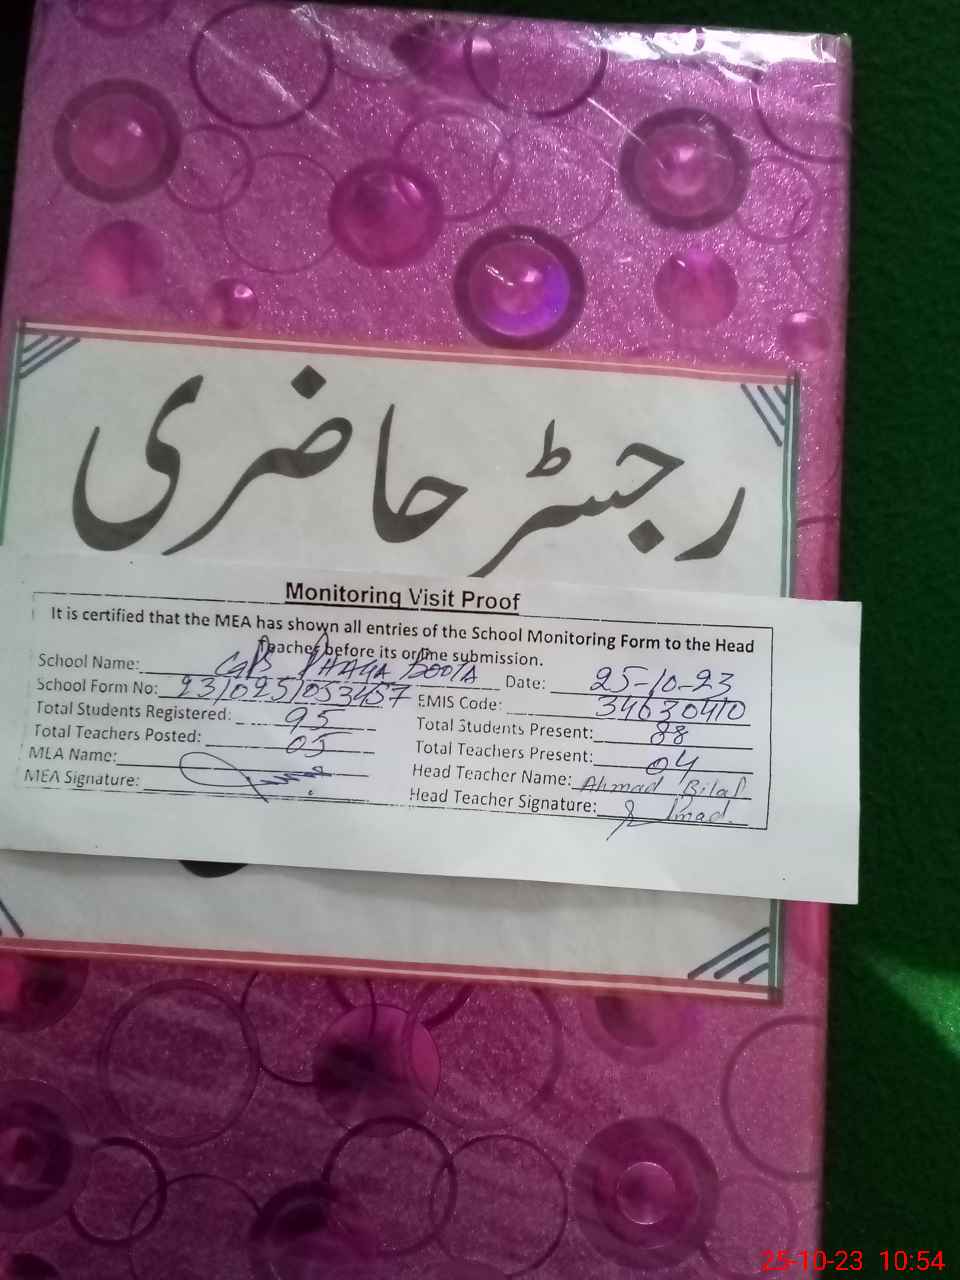 رجسٹر حاضری
Monitoring Visit Proof
It is certified that the MEA has shown all entries of the School Monitoring Form to the Head
Teacher before its online submission.
School Name: GPS BHAGA BOOTA Date: 25-10-23
School Form No: 2310251053457 EMIS Code: 34630410
Total Students Registered: 95 Total Students Present: 88
Total Teachers Posted: 05 Total Teachers Present: 04
MEA Name: Head Teacher Name: Ahmad Bilal
MEA Signature: Head Teacher Signature:
25-10-23 10:54